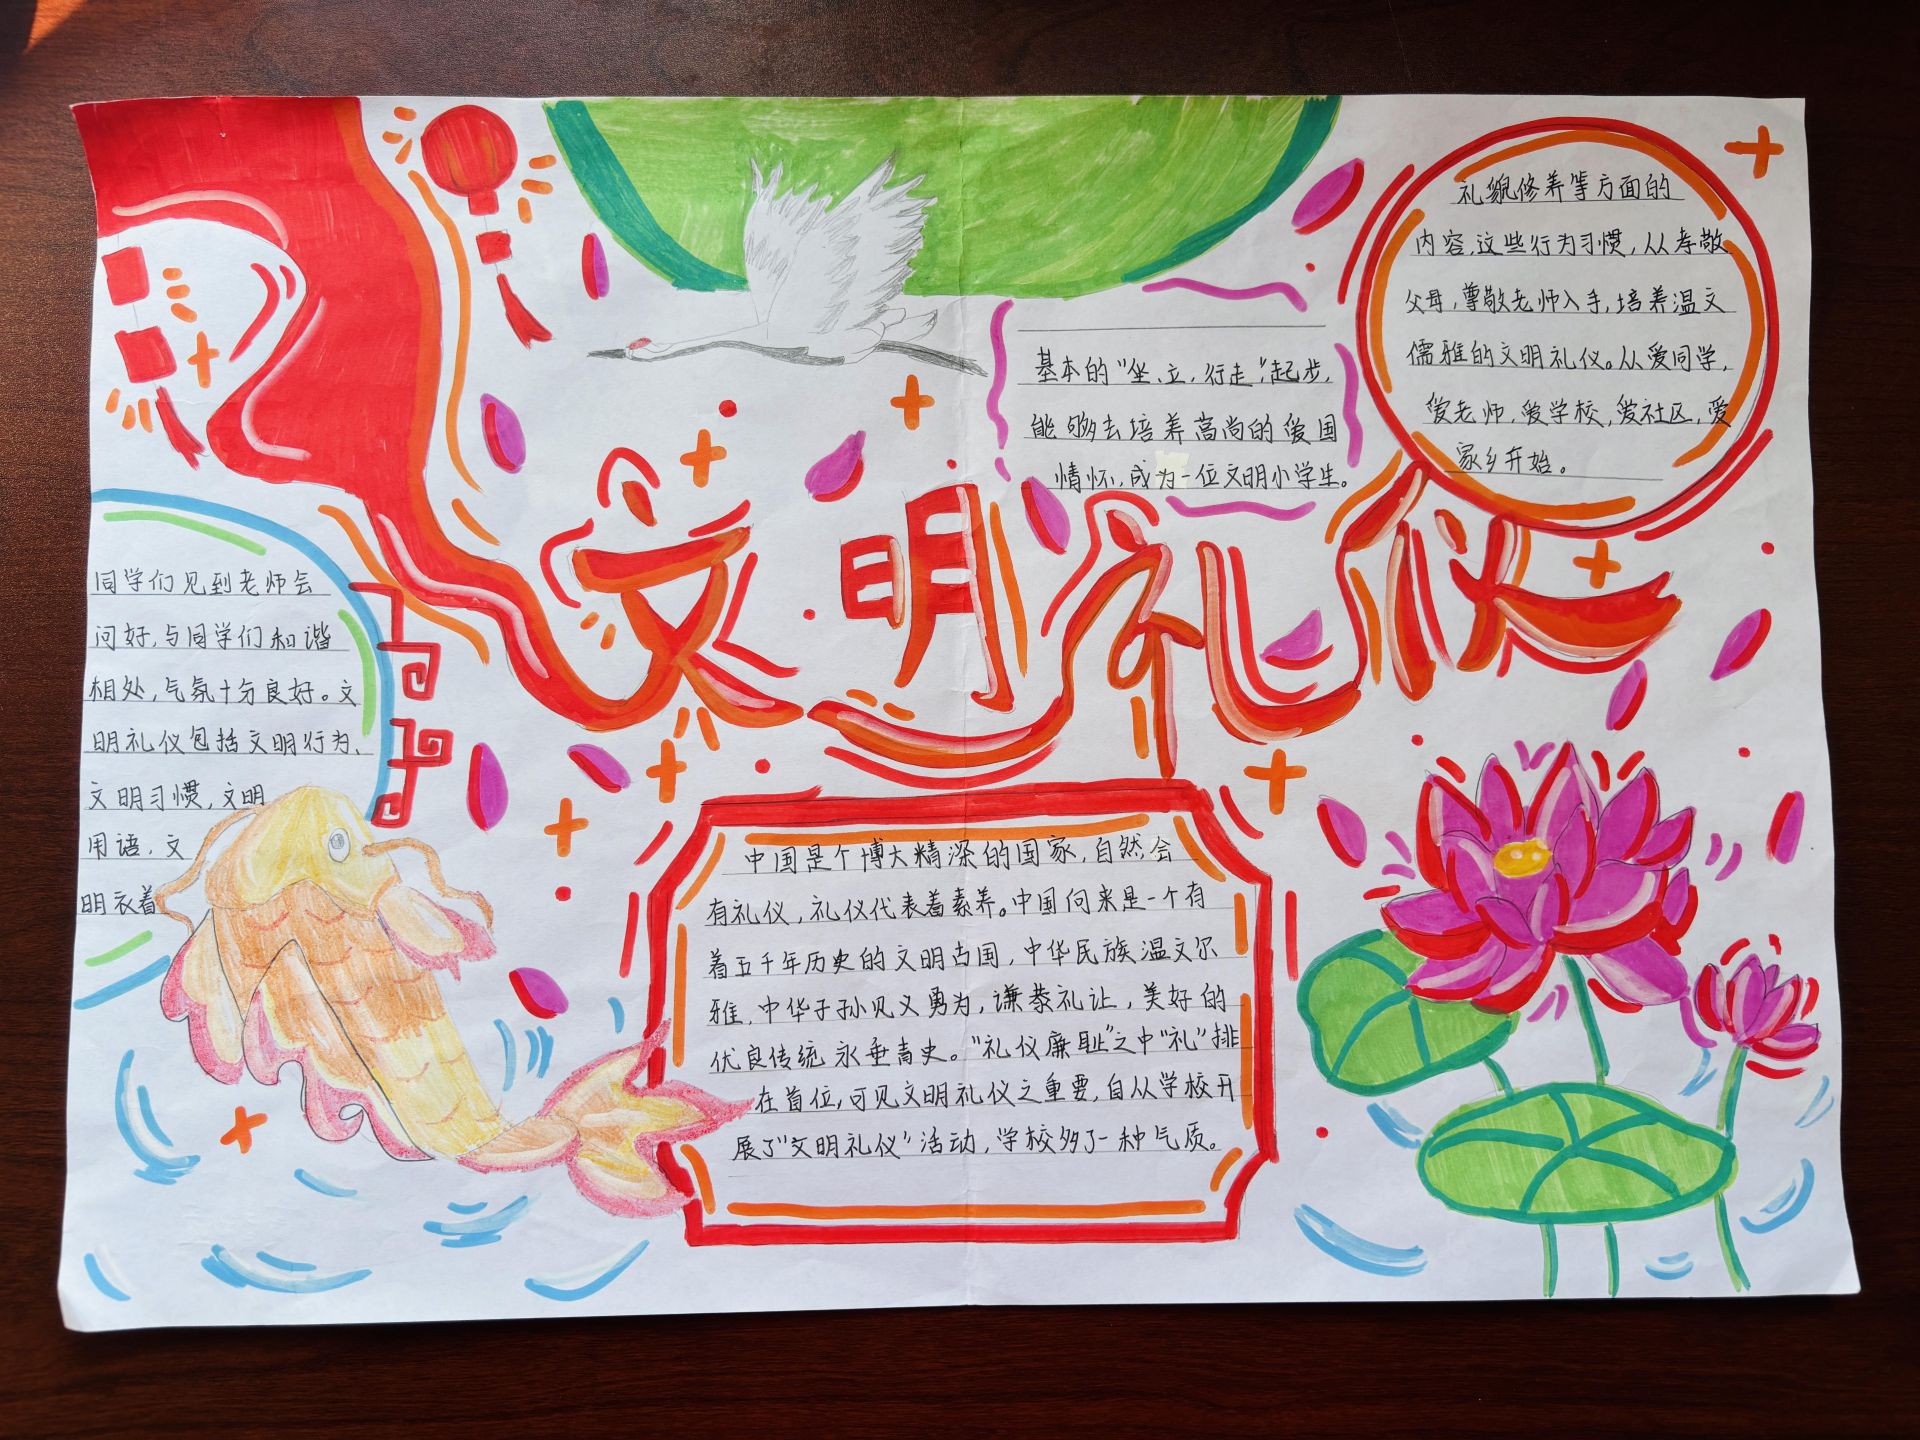 文明礼仪
中国是个博大精深的国家,自然会
有礼仪,礼仪代表着素养。中国向来是一个有
着五千年历史的文明古国,中华民族温文尔
雅,中华子孙见义勇为,谦恭礼让,美好的
优良传统永垂青史。“礼仪廉耻”之中“礼”排
在首位,可见文明礼仪之重要,自从学校开
展了“文明礼仪”活动,学校多了一种气质。
同学们见到老师会
问好,与同学们和谐
相处,气氛十分良好。文
明礼仪包括文明行为、
文明习惯,文明
用语,文
明衣着
礼貌修养等方面的
内容,这些行为习惯,从孝敬
父母,尊敬老师入手,培养温文
儒雅的文明礼仪。从爱同学,
爱老师,爱学校,爱社区,爱
家乡开始。
基本的“坐、立,行走”,起步,
能够去培养高尚的爱国
情怀,成为一位文明小学生。